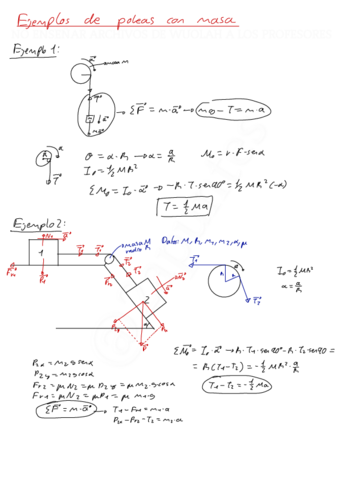 Ejemplos de poleas con masa
Ejemplo 1:
masa M
ΣF⃗ = m·a⃗ → mg - T = m a
θ = α·R → α = a/R
M₀ = r·F·senα
I₀ = 1/2 MR²
ΣM₀ = I₀·α⃗ → -R·T·sen90° = 1/2 MR²(-α)
T = 1/2 Ma
Ejemplo 2:
masa M
radio R
Datos: M, R, m₁, m₂, α, μ
I₀ = 1/2 MR²
α = a/R
ΣM⃗₀ = I₀·α⃗ → R·T₁·sen90° - R·T₂·sen90 =
= R(T₁-T₂) = -1/2 MR²·a/R
T₁-T₂ = -1/2 Ma
P₂ₓ = m₂gsenα
P₂y = m₂gcosα
Fr₂ = μN₂ = μP₂y = μm₂gcosα
Fr₁ = μN₂ = μP₁ = μ m₁g
ΣF⃗ = m·a⃗ → T₁-Fr₁ = m₁·a
P₂ₓ-Fr₂-T₂ = m₂·a